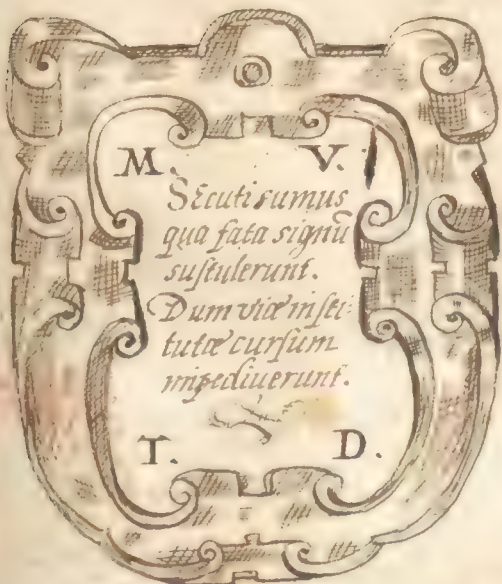 M. V.
Secuti sumus
qua fata signū
sustulerunt.
Dum viæ insti-
tutæ cursum
impediverunt.
T. D.